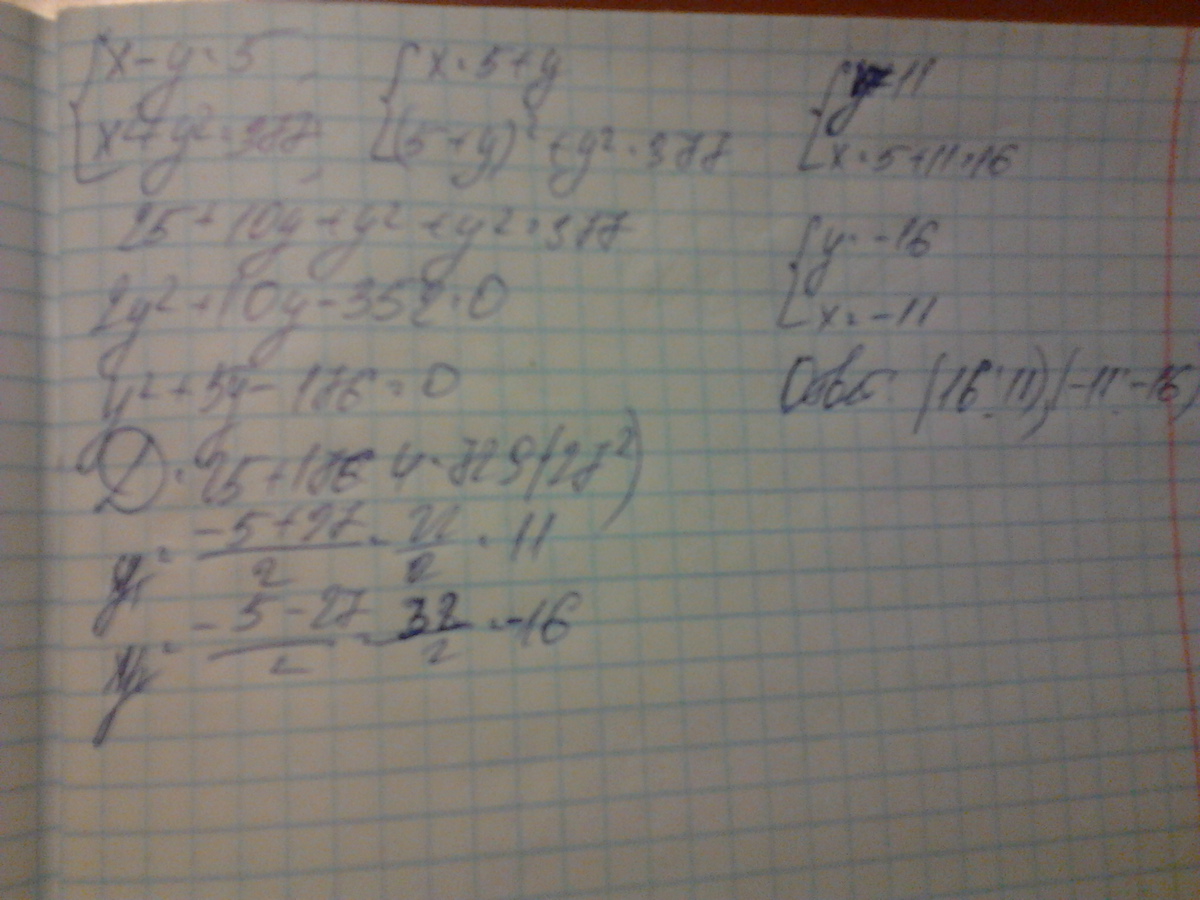 x - y = 5,
x² + y² = 377;
x = 5 + y
(5 + y)² + y² = 377
25 + 10y + y² + y² = 377
2y² + 10y - 352 = 0
y² + 5y - 176 = 0
D = 25 + 176 · 4 = 729 (27²)
y₁ = (-5 + 27)/2 = 22/2 = 11
y₂ = (-5 - 27)/2 = -32/2 = -16
y = 11
x = 5 + 11 = 16
y = -16
x = -11
Ответ: (16; 11), (-11; -16)